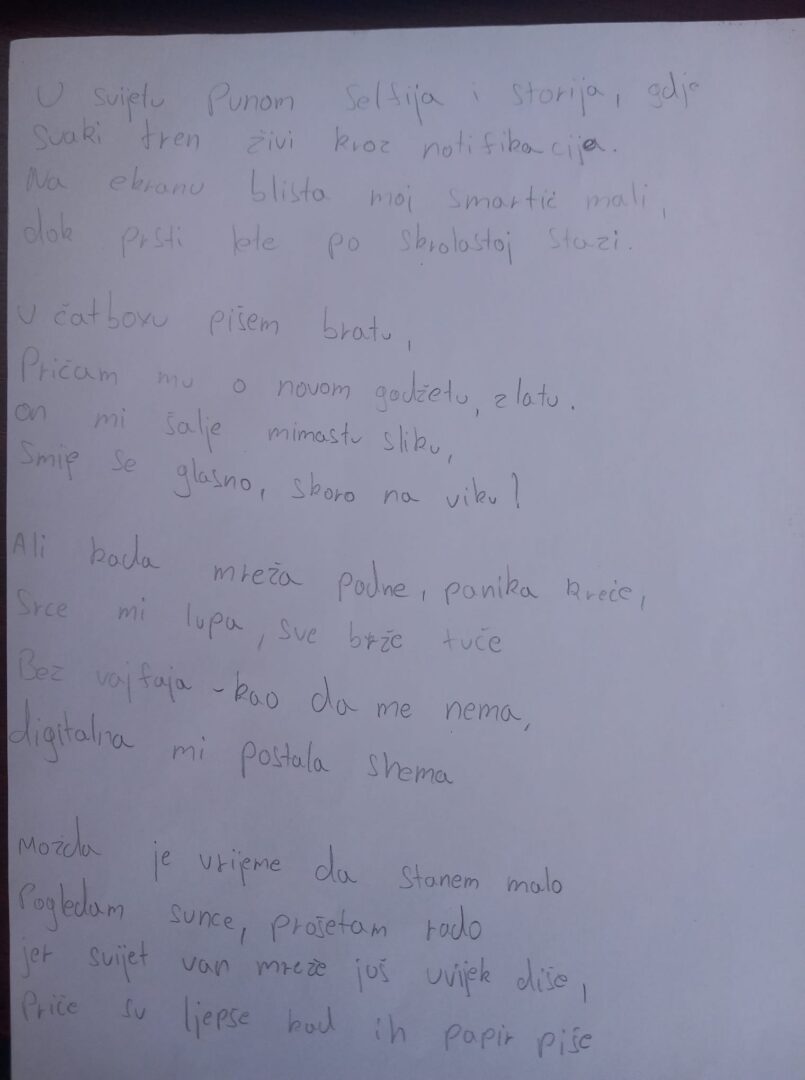 U svijetu punom selfija i storija, gdje
svaki tren živi kroz notifikacija.
Na ekranu blista moj smartić mali,
dok prsti lete po skrolastoj stazi.
U čatboxu pišem bratu,
Pričam mu o novom gadžetu, zlatu.
on mi šalje mimastu sliku,
Smije se glasno, skoro na viku!
Ali kada mreža padne, panika kreće,
Srce mi lupa, sve brže tuče
Bez vajfaja - kao da me nema,
digitalna mi postala shema
Možda je vrijeme da stanem malo
Pogledam sunce, prošetam rado
jer svijet van mreže još uvijek diše,
Priče su ljepse kad ih papir piše